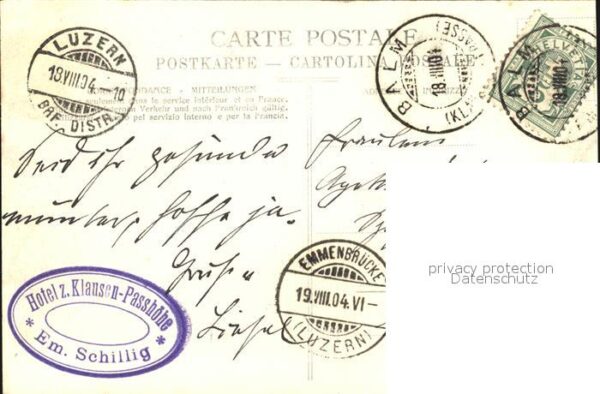 CARTE POSTALE
POSTKARTE — CARTOLINA POSTALE
MITTEILUNGEN
seulement dans le service intérieur et en France.
internen Verkehr und nach Frankreich gültig.
pel servizio interno e per la Francia.
LUZERN
18 VIII 04. 10
BRF. DISTR.
BALM
18 VIII 04
(KLAUSENPASSE)
HELVETIA
BALM
18 VIII 04
Fräulein
Seid Ihr gesund u
munter, hoffe ja.
Grüsse
Liesel
EMMENBRÜCKE
19.VIII.04.VI–
(LUZERN)
Hotel z. Klausen-Passhöhe
* Em. Schillig *
privacy protection
Datenschutz